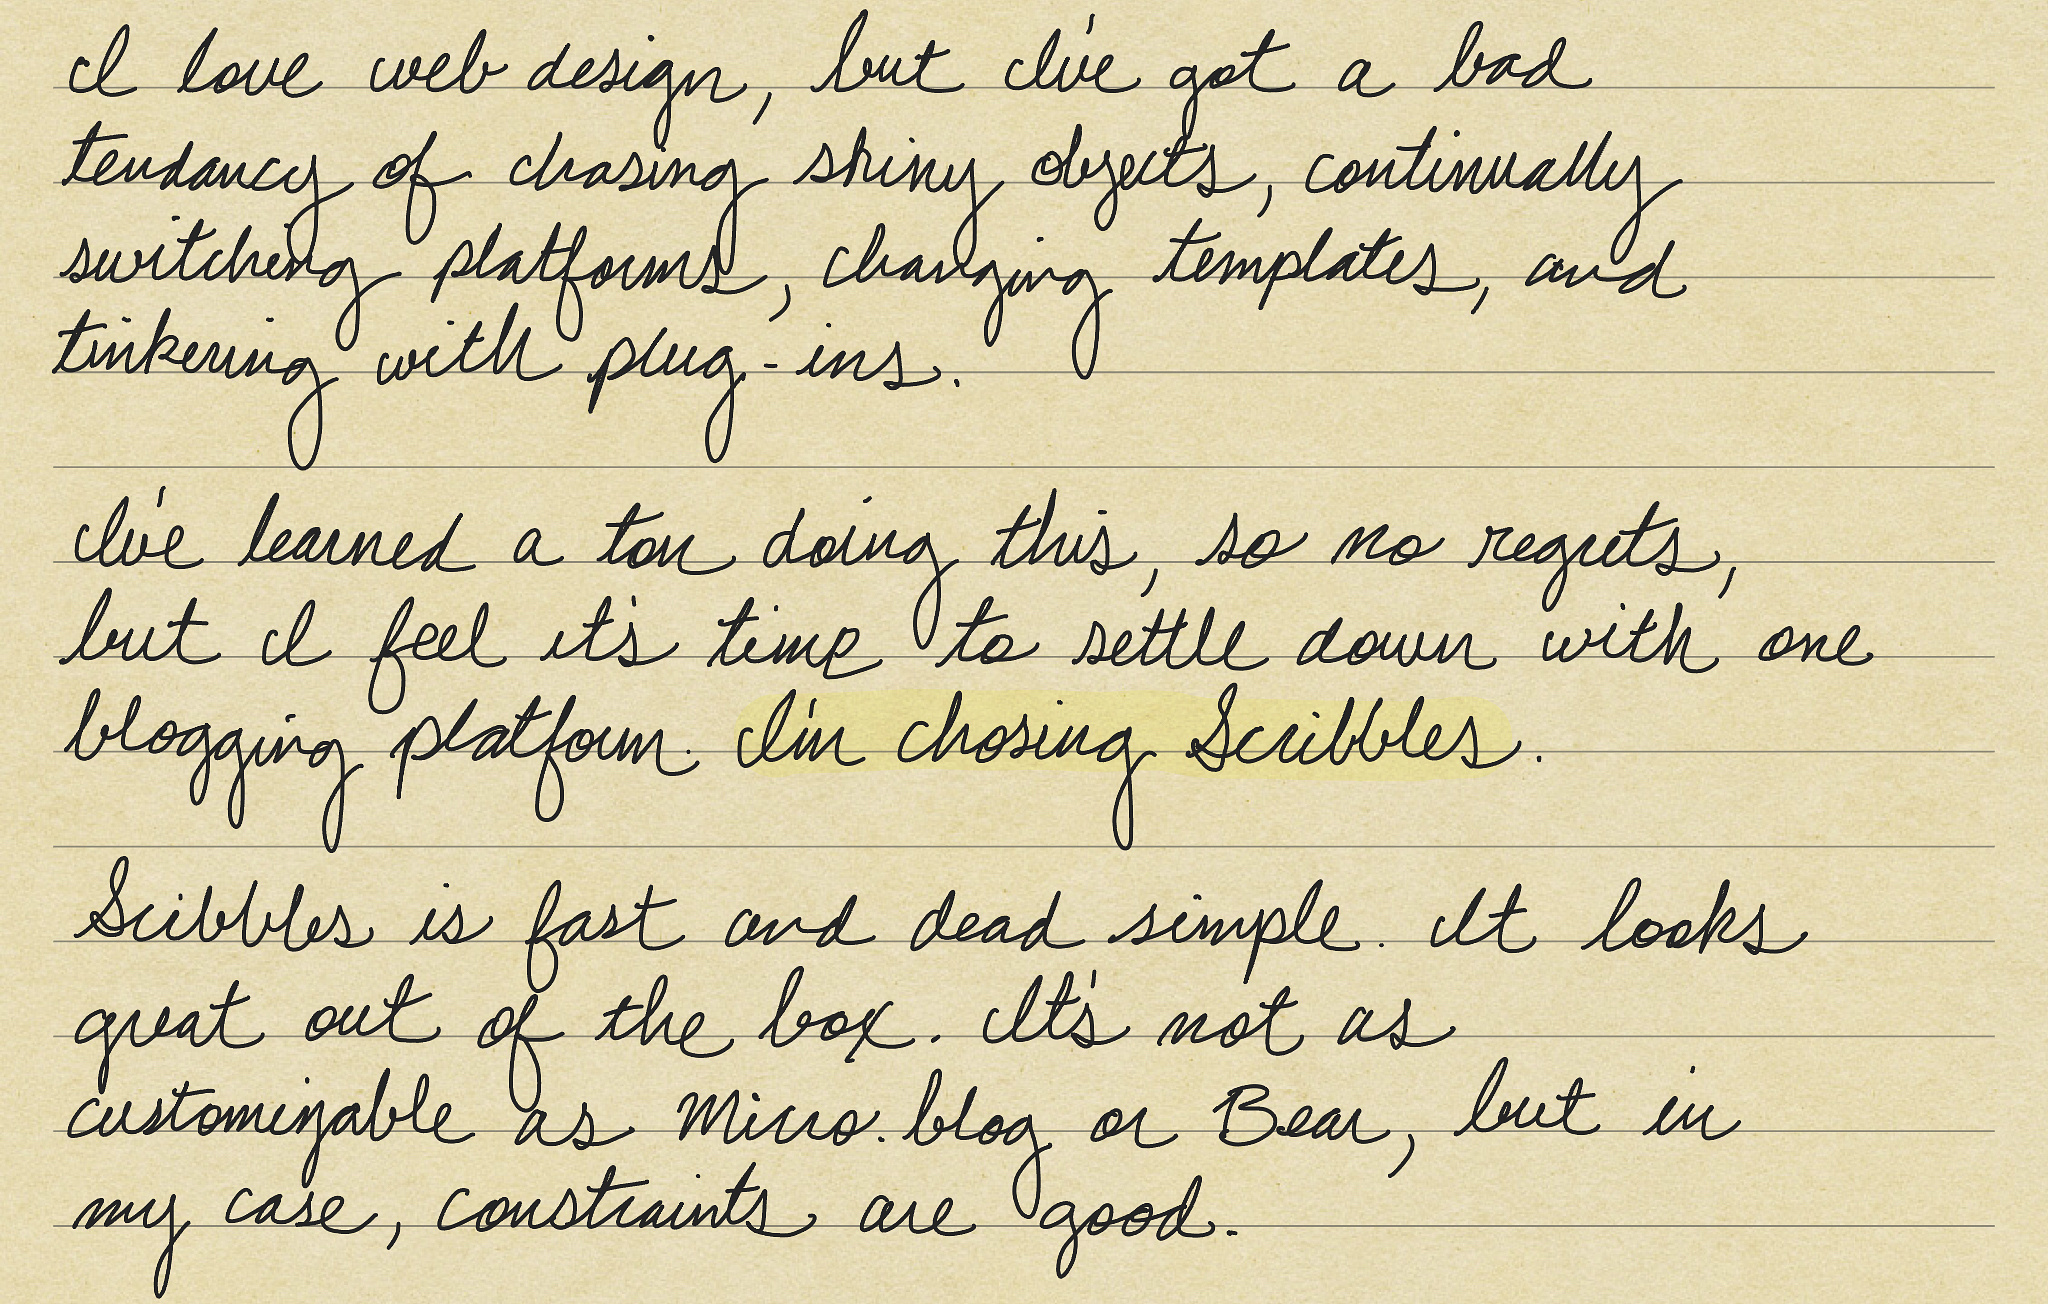 I love web design, but I've got a bad
tendancy of chasing shiny objects, continually
switching platforms, changing templates, and
tinkering with plug-ins.
I've learned a ton doing this, so no regrets,
but I feel it's time to settle down with one
blogging platform. I'm chosing Scribbles.
Scribbles is fast and dead simple. It looks
great out of the box. It's not as
customizable as Micro.blog or Bear, but in
my case, constraints are good.